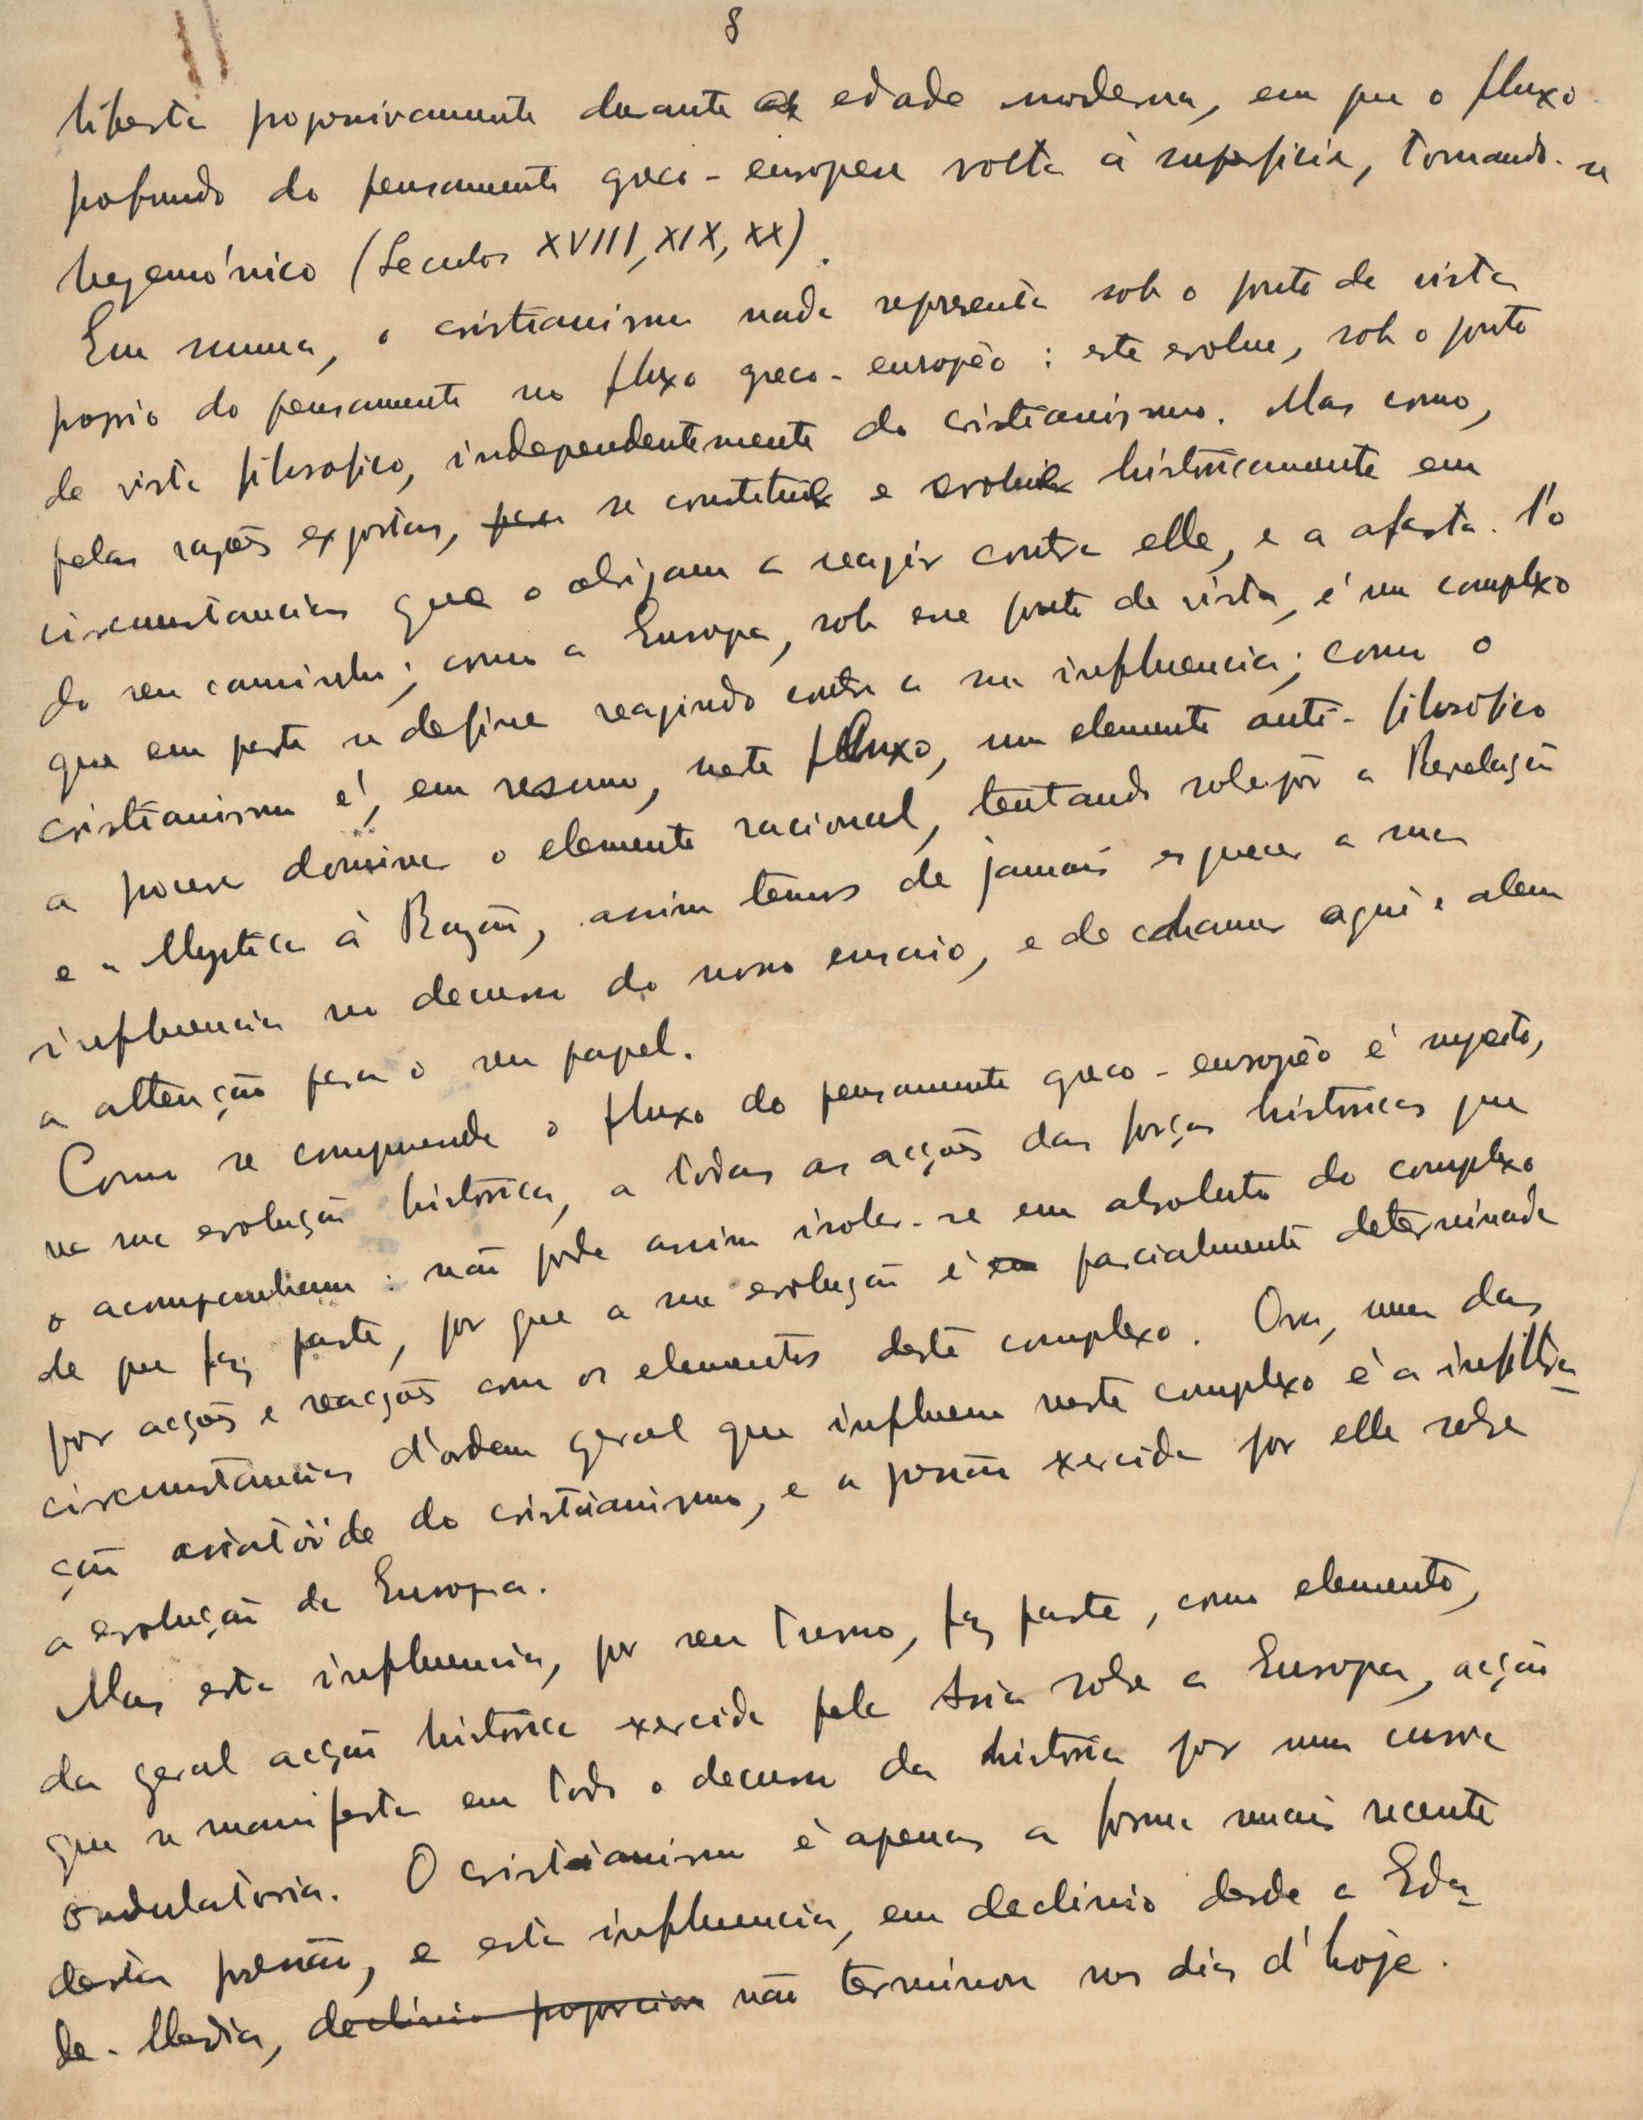 8
liberta progressivamente durante a edade moderna, em que o fluxo
profundo do pensamento greco-europeu volta á superficie, tornando-se
hegemónico (Seculos XVIII, XIX, XX).
Em summa, o cristianismo nada representa sob o ponto de vista
proprio do pensamento no fluxo greco-européo: este evolue, sob o ponto
de vista filosofico, independentemente do cristianismo. Mas como,
pelas razões expostas, se constitui e evolui históricamente em
circumstancias que o obrigam a reagir contra elle, e a afasta-l'o
do seu caminho; como a Europa, sob esse ponto de vista, é um complexo
que em parte se define reagindo contra a sua influencia; como o
cristianismo é, em resumo, neste fluxo, um elemento anti-filosófico
a procurar dominar o elemento racional, tentando sobrepôr a Revelação
e a Mystica á Razão, assim temos de jamais esquecer a sua
influencia no decurso do nosso ensaio, e de chamar aqui e alem
a attenção para o seu papel.
Como se comprende o fluxo do pensamento greco-européo é sujeito,
na sua evolução histórica, a todas as acções das forças históricas que
o acompanham: não pode assim isolar-se em absoluto do complexo
de que faz parte, por que a sua evolução é parcialmente determinada
por acções e reacções com os elementos deste complexo. Ora, uma das
circumstancias d'ordem geral que influem neste complexo é a infiltra-
ção asiatóide do cristianismo, e a pressão exercida por elle sobre
a evolução da Europa.
Mas esta influencia, por seu turno, faz parte, como elemento,
da geral acção histórica exercida pela Asia sobre a Europa, acção
que se manifesta em todo o decurso da história por uma curva
ondulatoria. O cristianismo é apenas a forma mais recente
desta pressão, e esta influencia, em declinio desde a Eda-
de-Media, declinio proporcion não terminou nos dias d'hoje.